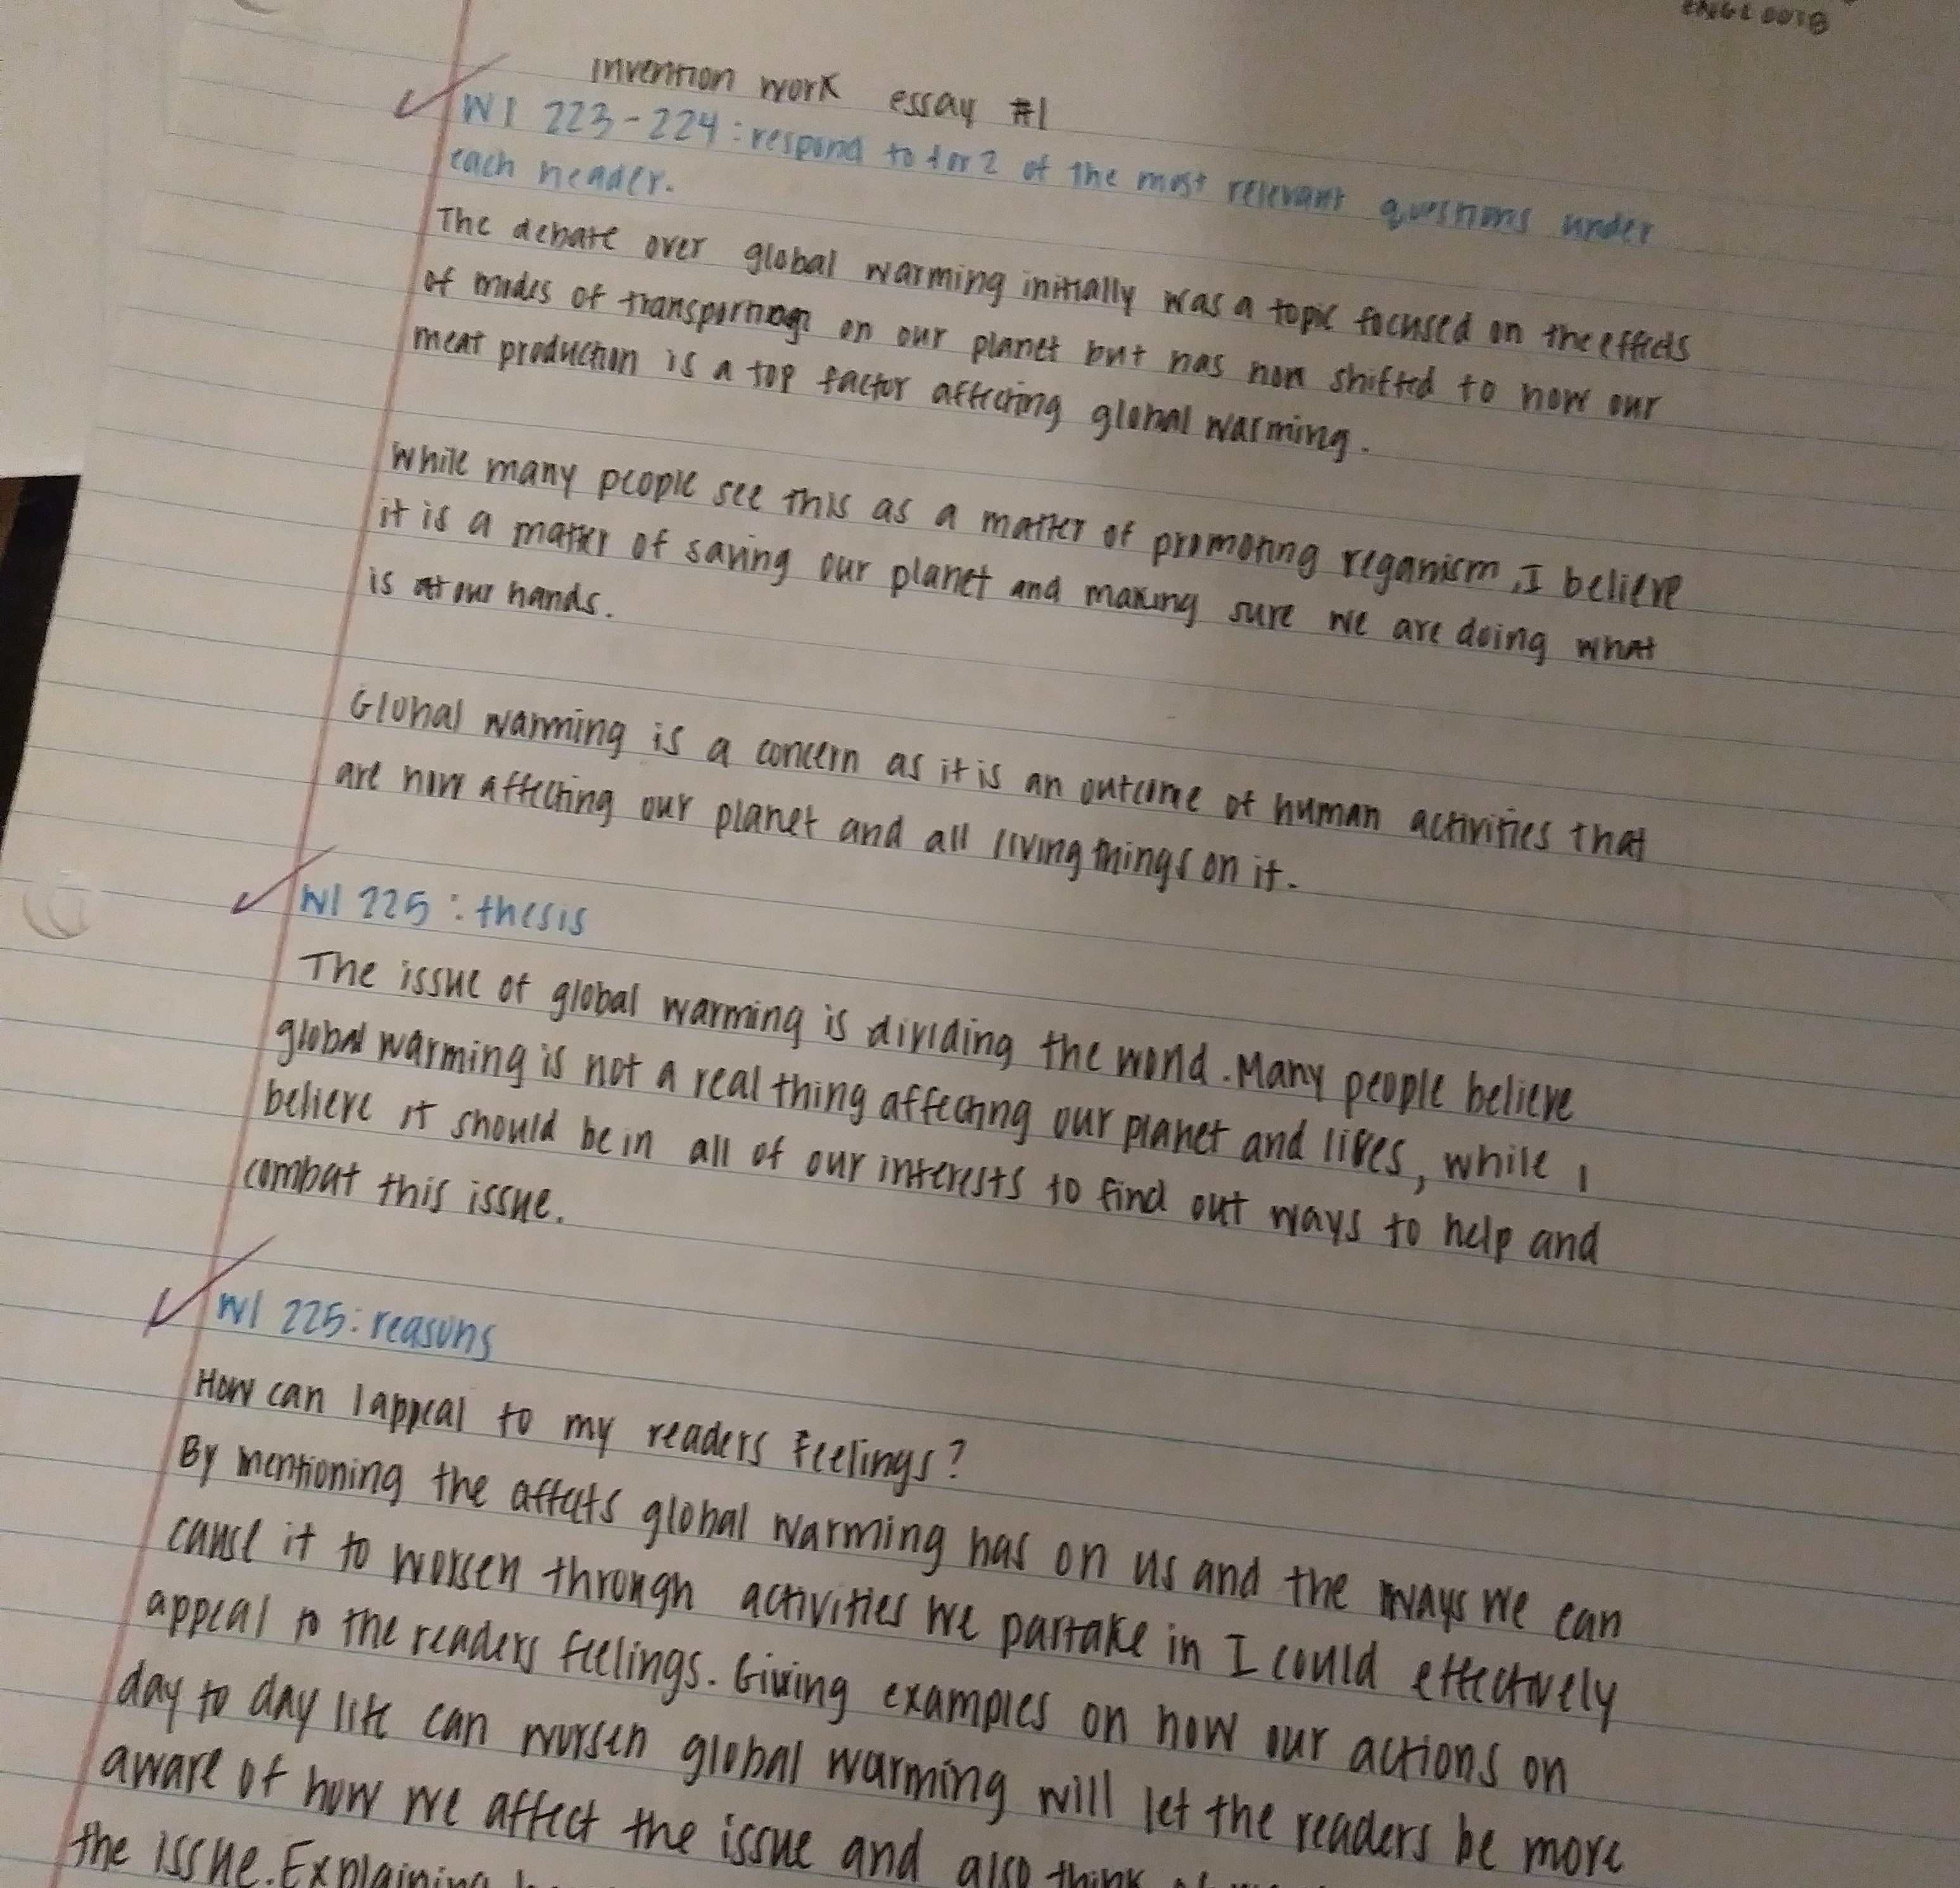 ENGL 001B
invention work essay #1
W1 223-224: respond to 1 or 2 of the most relevant questions under
each header.
The debate over global warming initially was a topic focused on the effects
of modes of on our planet but has now shifted to how our
meat production is a top factor affecting global warming.
While many people see this as a matter of promoting veganism, I believe
it is a matter of saving our planet and making sure we are doing what
is at our hands.
Global warming is a concern as it is an outcome of human activities that
are now affecting our planet and all living things on it.
W1 225: thesis
The issue of global warming is dividing the world. Many people believe
global warming is not a real thing affecting our planet and lives, while I
believe it should be in all of our interests to find out ways to help and
combat this issue.
W1 225: reasons
How can I appeal to my readers feelings?
By mentioning the affects global warming has on us and the ways we can
cause it to worsen through activities we partake in I could effectively
appeal to the readers feelings. Giving examples on how our actions on
day to day life can worsen global warming will let the readers be more
aware of how we affect the issue and also think
the issue. Explaining